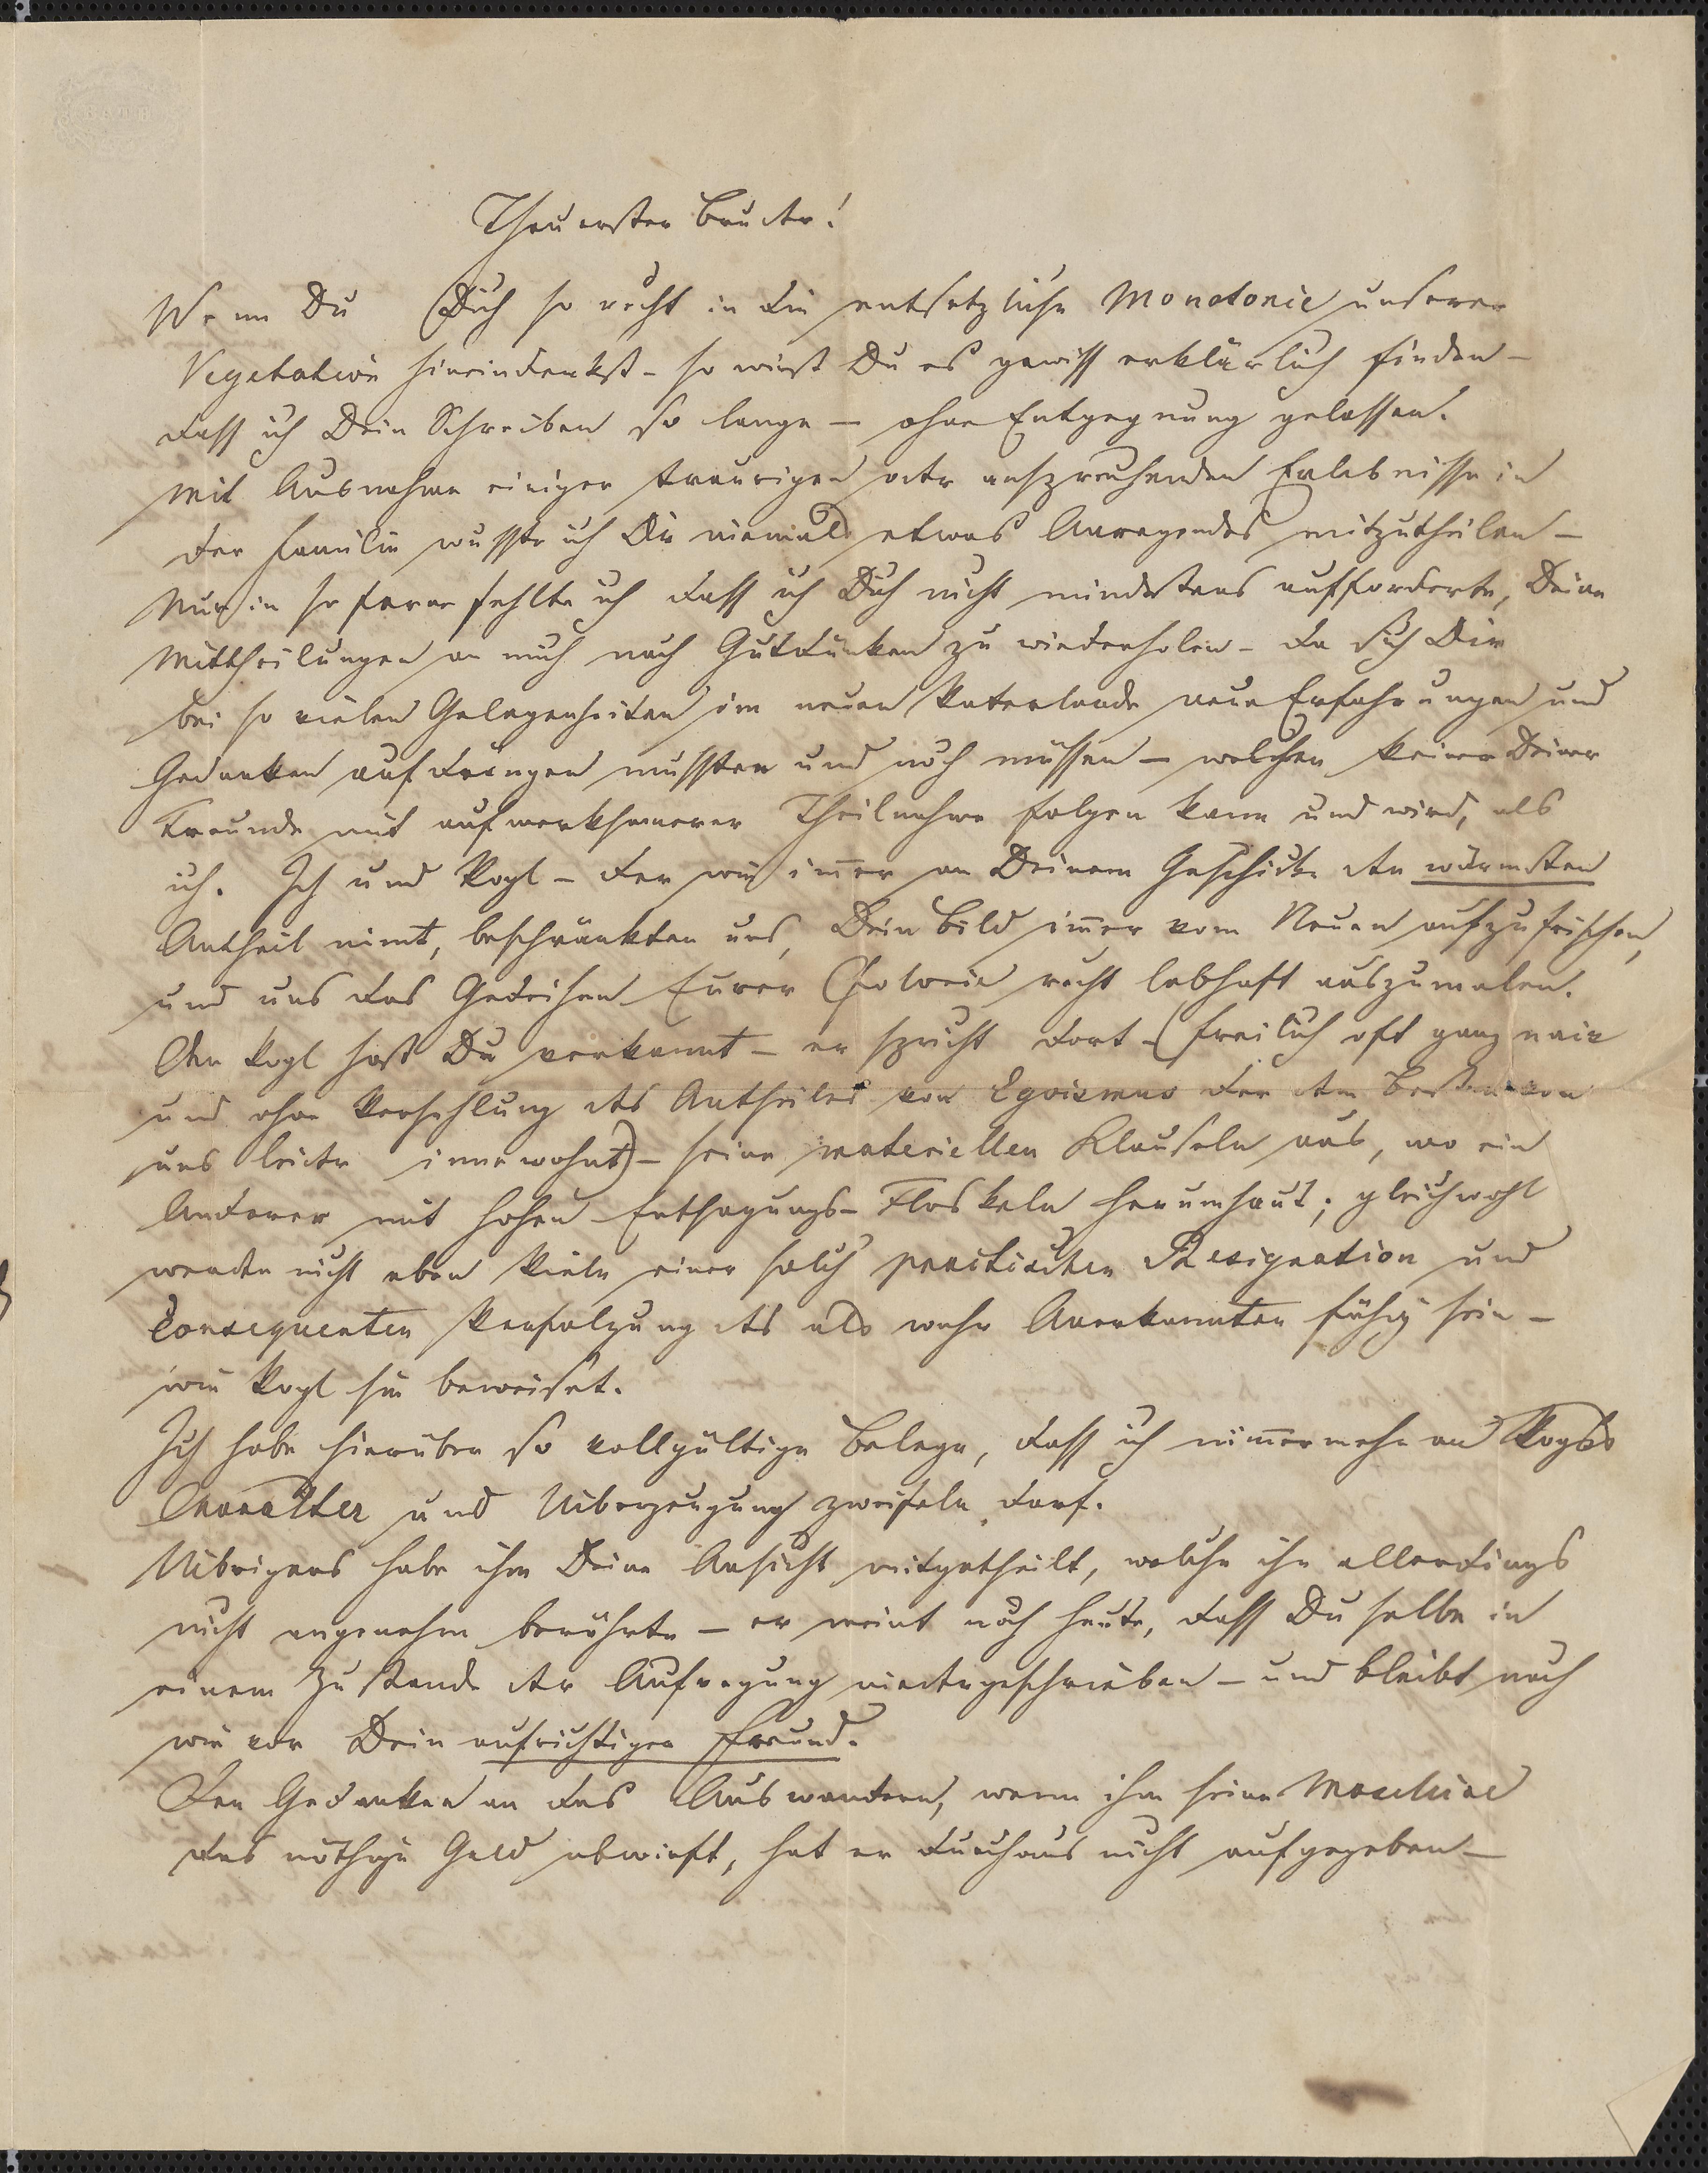 Theuerster Bruder!
Wenn Du Dich so recht in die entsetzliche Monotonie unserer
Vegetation hineindenkst – so wirst Du es gewiss erklärlich finden –
dass ich Dein Schreiben so lange – ohne Entgegnung gelassen.
Mit Ausnahme einiger traurigen oder aufzreuhenden Erlebnisse in
der Familie wusste ich Dir niemals etwas Anregendes mitzutheilen –
Nur in so ferne fehlte ich dass ich Dich nicht mindestens aufforderte, Deine
Mittheilungen an mich nach Gutdünken zu wiederholen – da sich Dir
bei so vielen Gelegenheiten im neuen Vaterlande neue Erfahrungen und
Gedanken aufdrängen mussten und noch müssen – welchen keiner Deiner
Freunde mit aufmerksamerer Theilnahme folgen kann und wird, als
ich. Ich und Vogl – der wie im̅er an Deinem Geschicke den wärmsten
Antheil nimt, beschränkten uns, Dein Bild im̅er vom Neuen aufzufrischen,
und uns das Gedeihen Eurer Colonie recht lebhaft auszumalen.
Den Vogl hast Du verkannt – er spricht dort – (freilich oft ganz naiv
und ohne Verhehlung des Antheiles von Egoismus der dem Besten von
uns leider innewohnt) – seine materiellen Klauseln aus, wo ein
Anderer mit hohen Entsagungs-Floskeln herumhaut; gleichwohl
werden nicht eben Viele einer solch practischen Resignation und
consequenten Verfolgung des als wahr Anerkannten fähig sein –
wie Vogl sie beweiset.
Ich habe hierüber so vollgültige Belege, dass ich nim̅ermehr an Vogls
Charakter und Uiberzeugung zweifeln darf.
Uibrigens habe ihm Deine Ansicht mitgetheilt, welche ihn allerdings
nicht angenehm berührte – er meint noch heute, dass Du selbe in
einem Zustande der Aufregung niedergeschrieben – und bleibt nach
wie vor Dein aufrichtiger Freund.
Den Gedanken an das Auswandern, wenn ihm seine Maschine
das nöthige Geld abwirft, hat er durchaus nicht aufgegeben –